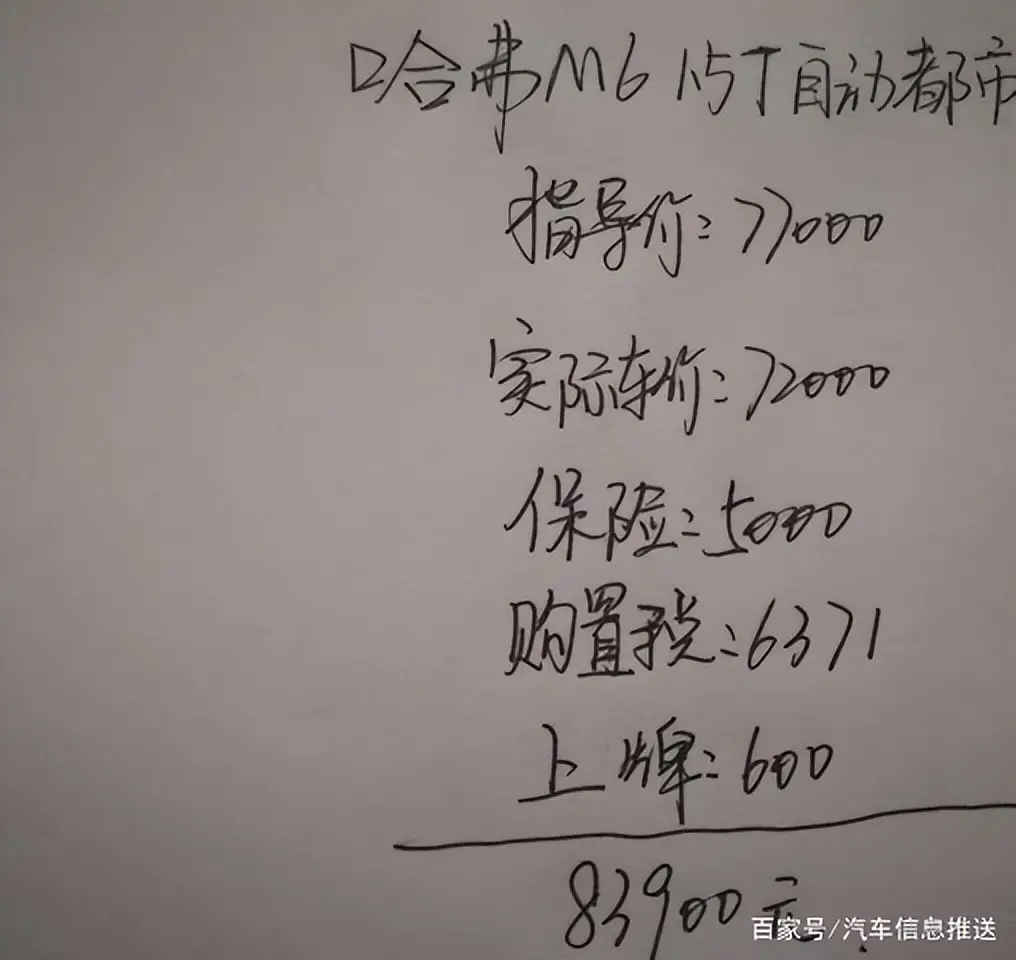 哈弗M6 1.5T自动都市
指导价:77000
实际车价:72000
保险:5000
购置税:6371
上牌:600
83900元
百家号/汽车信息推送